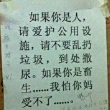 如果你是人，
请爱护公用设
施，请不要乱扔
垃圾，到处撒
尿。如果你是畜
生……我怕你妈
受不了……